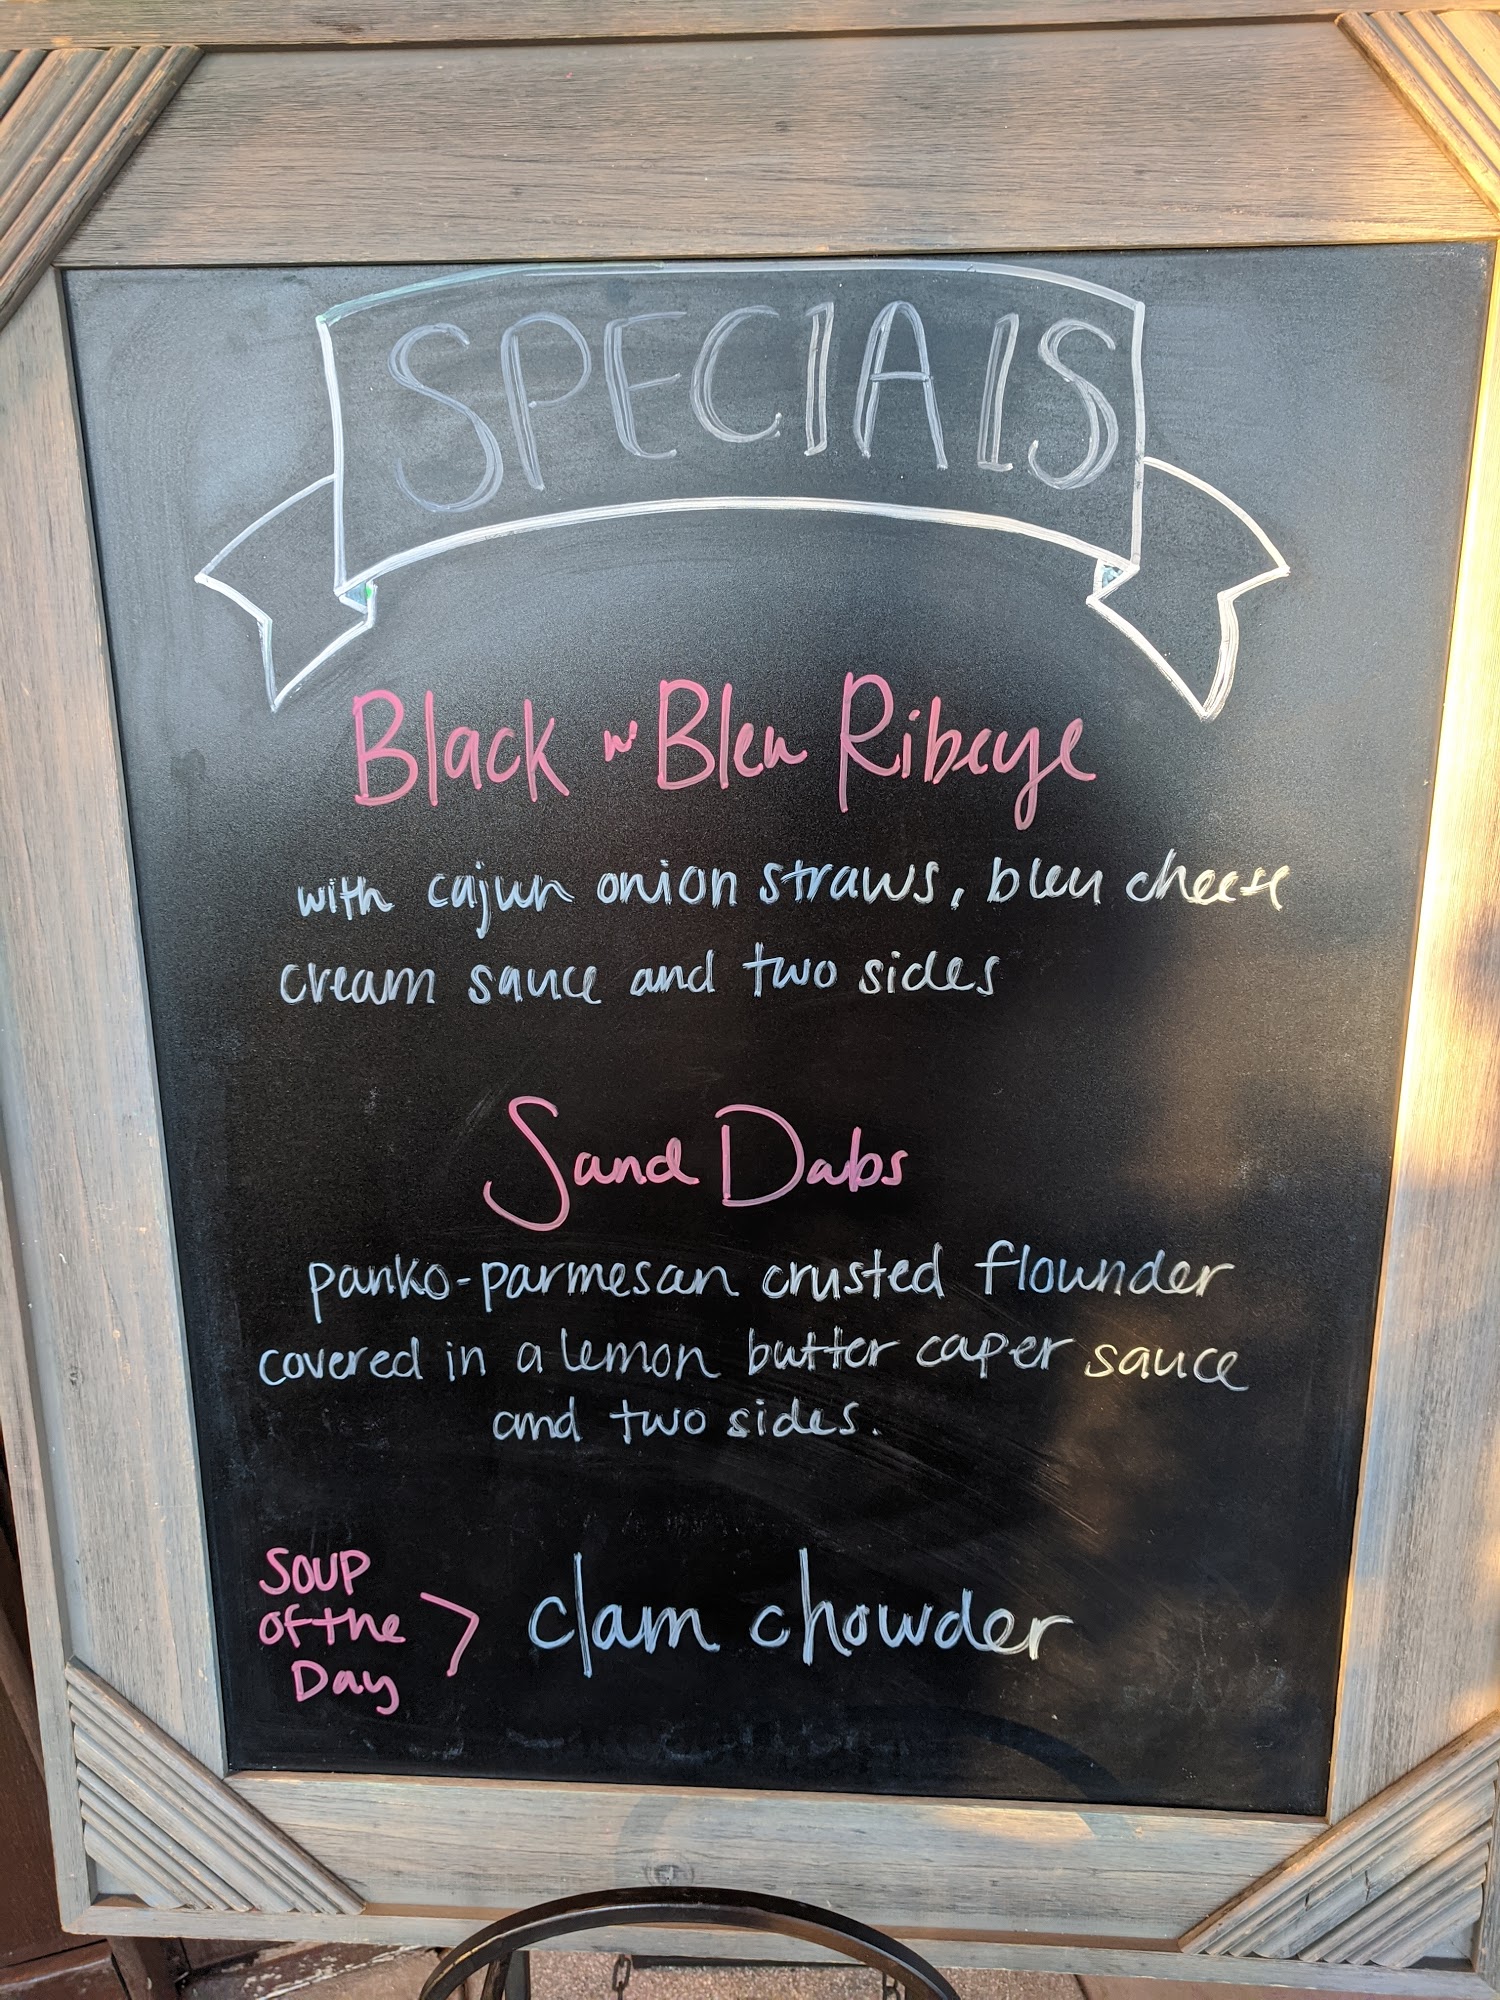 SPECIALS
Black n' Bleu Ribeye
with cajun onion straws, bleu cheese
cream sauce and two sides
Sand Dabs
panko-parmesan crusted flounder
covered in a lemon butter caper sauce
and two sides.
SOUP
OF THE
Day
> clam chowder